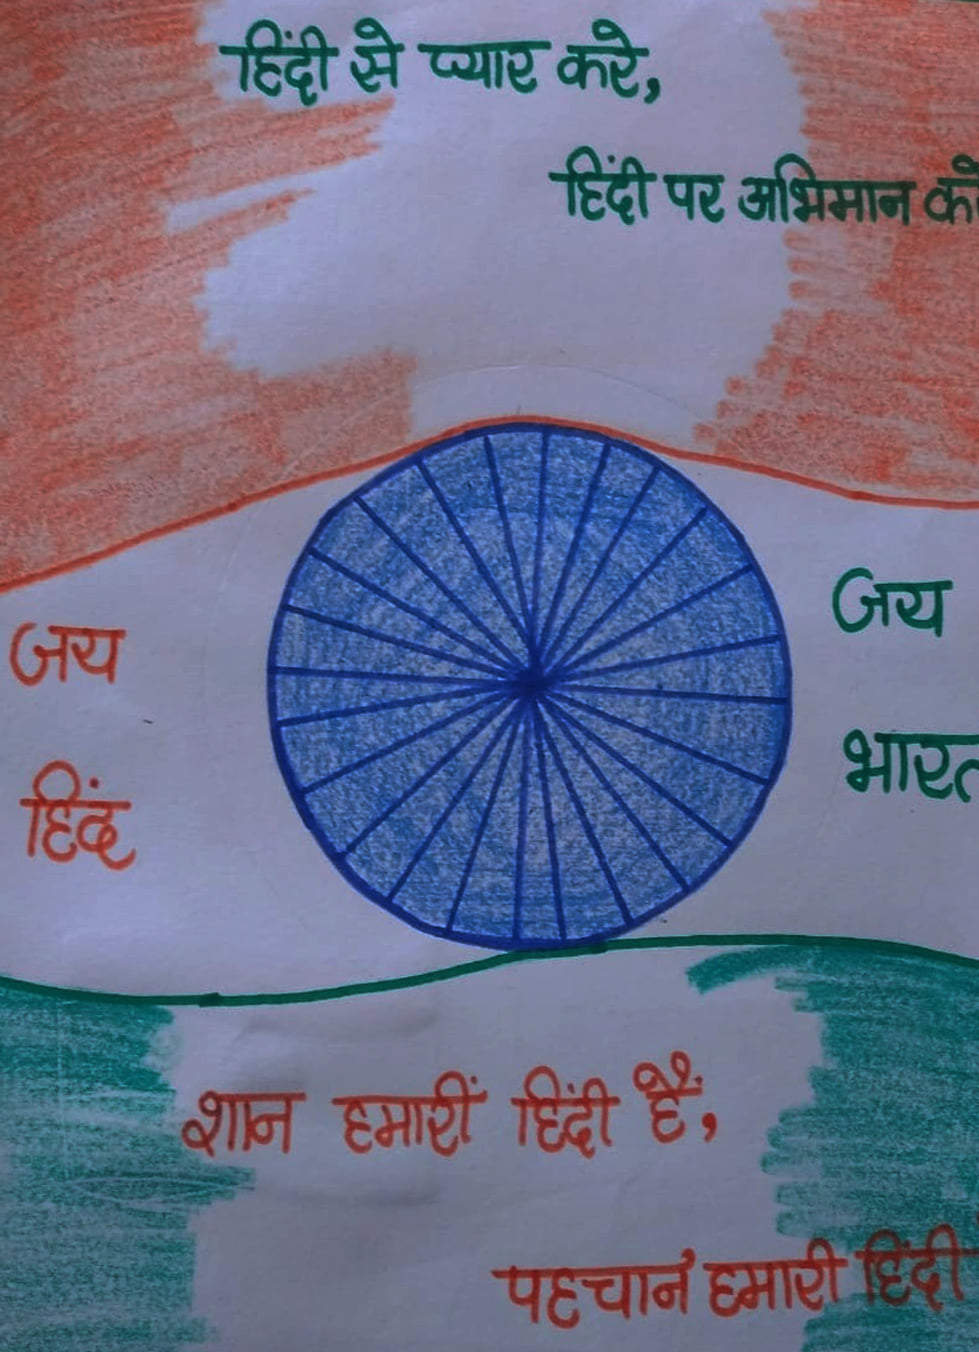 हिंदी से प्यार करे,
हिंदी पर अभिमान करे
जय
हिंद
जय
भारत
शान हमारीं हिंदी हैं,
पहचानं हमारी हिंदी